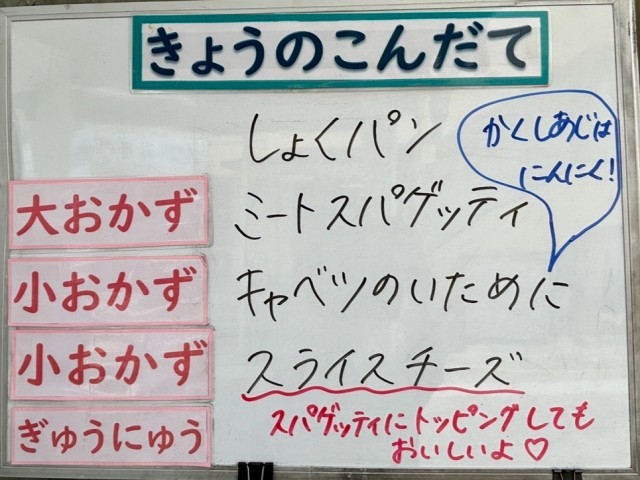 きょうのこんだて
しょくパン
かくしあじは
にんにく!
大おかず ミートスパゲッティ
小おかず キャベツのいために
小おかず スライスチーズ
スパゲッティにトッピングしても
おいしいよ♡
ぎゅうにゅう